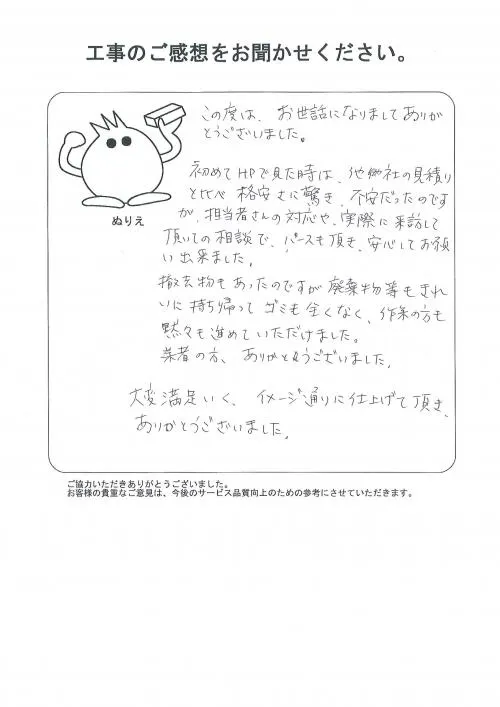 工事のご感想をお聞かせください。
この度は、お世話になりましてありが
とうございました。
初めてHPで見た時は、他御社の見積り
と比べ 格安さに驚き、不安だったのです
が、担当者さんの対応や、実際に来訪して
頂いての相談で、パースも頂き、安心してお願
い出来ました。
撤去物もあったのですが廃棄物等もきれ
いに持ち帰って ゴミも全くなく、作業の方も
黙々も進めていただけました。
業者の方、ありがとうございました。
大変満足いく、イメージ通りに仕上げて頂き、
ありがとうございました。
ぬりえ
ご協力いただきありがとうございました。
お客様の貴重なご意見は、今後のサービス品質向上のための参考にさせていただきます。